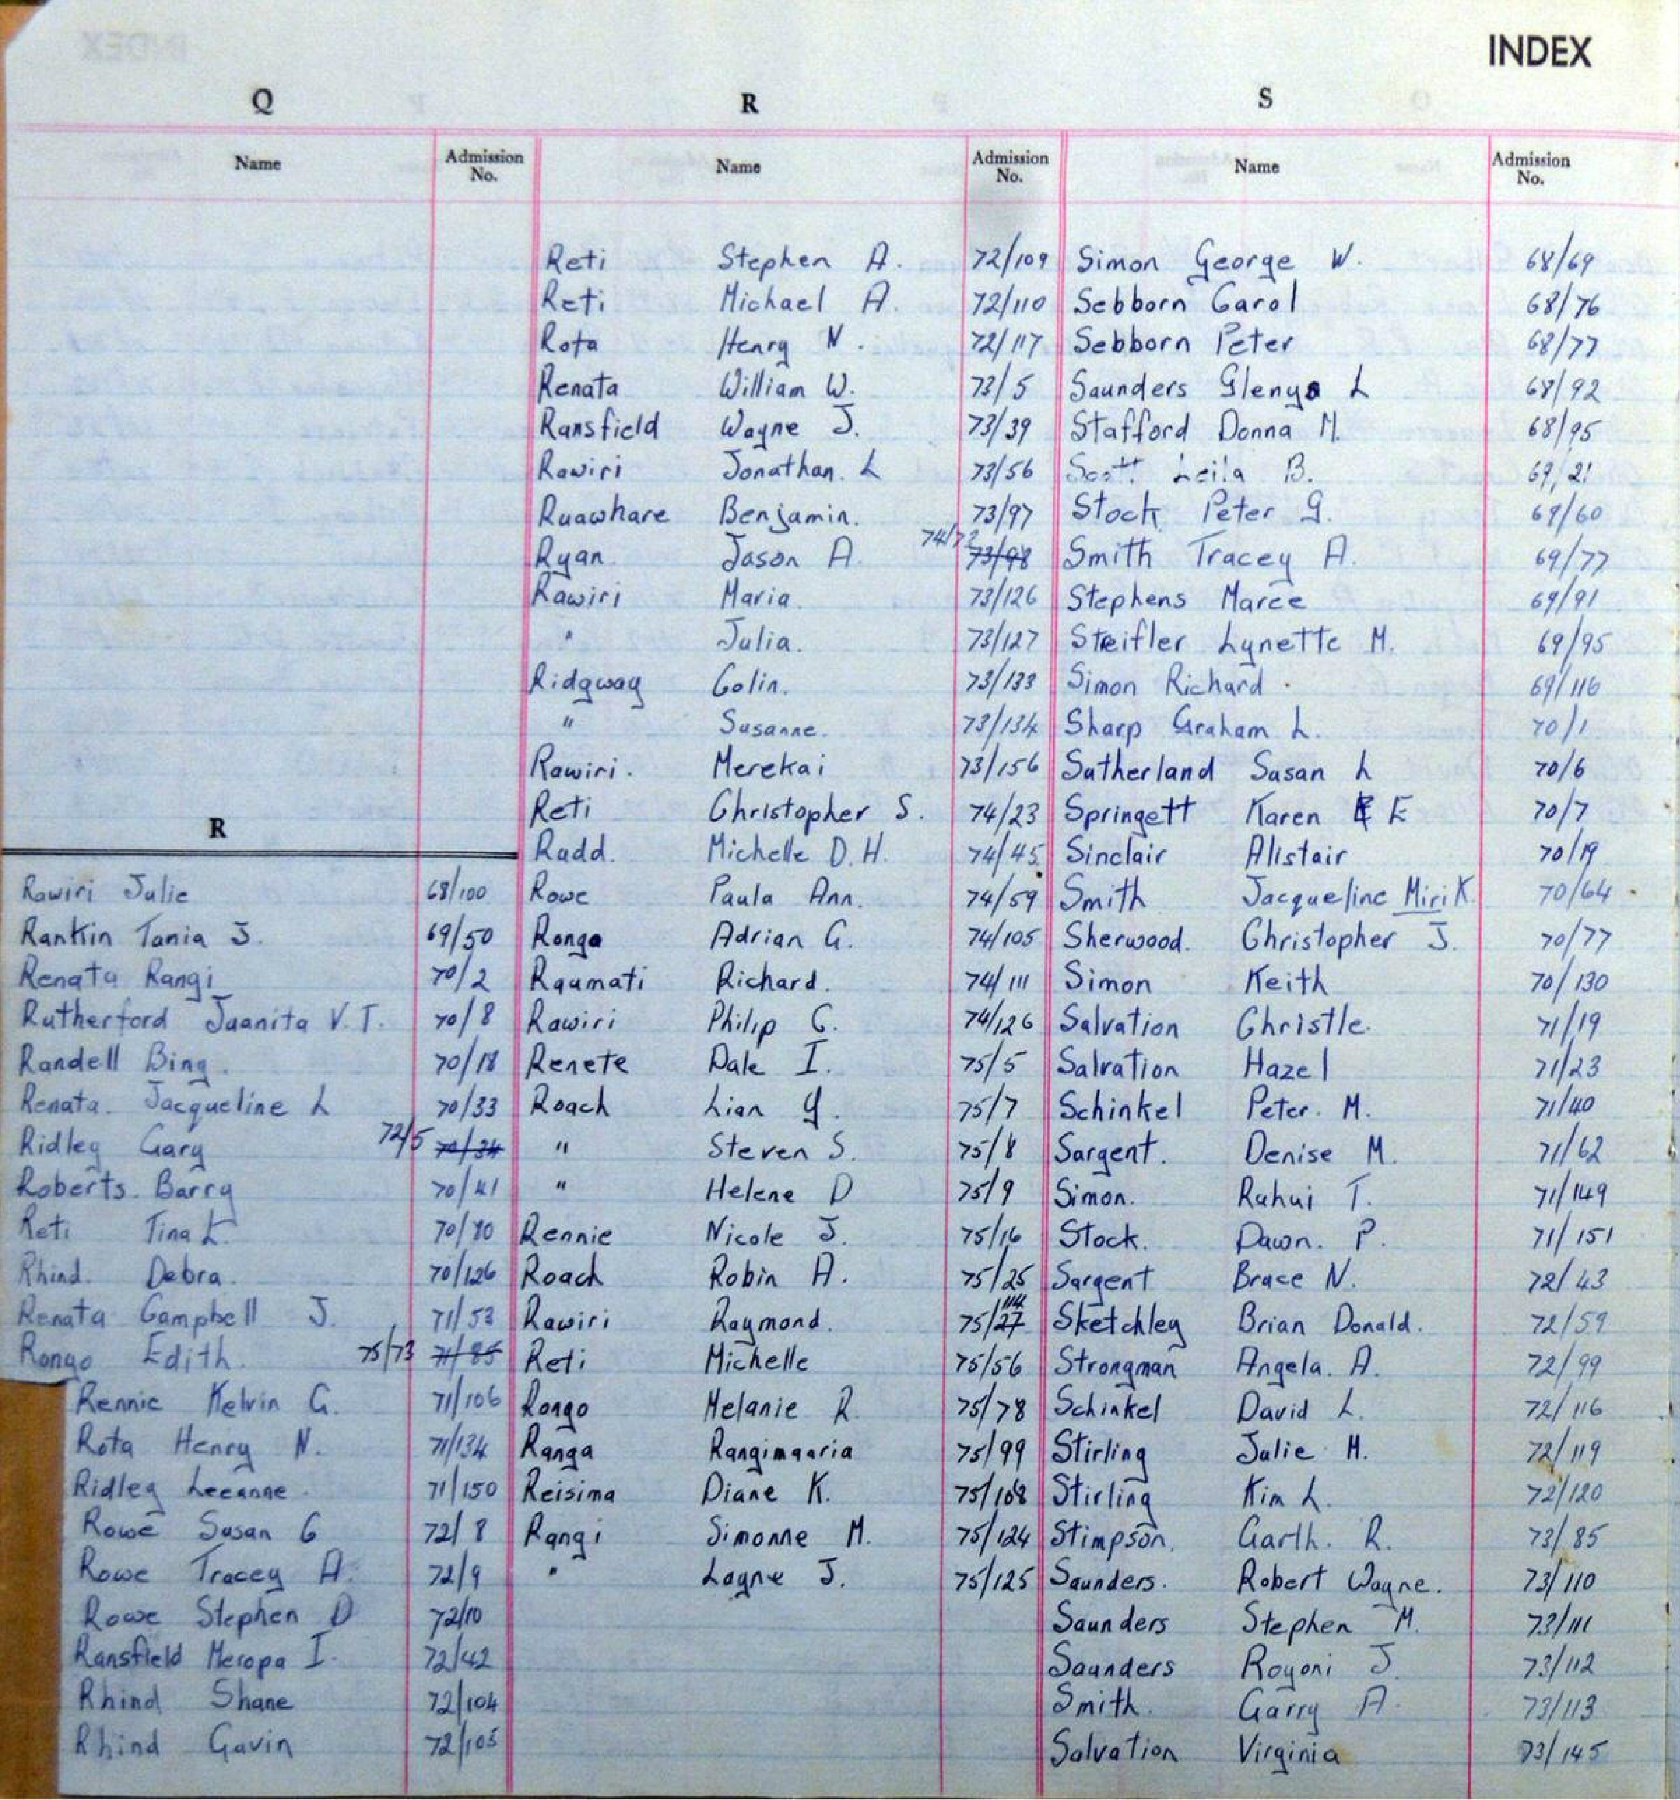 INDEX
Q
Name Admission No.
R
Rawiri Julie 68/100
Rankin Tania J. 69/50
Renata Rangi 70/2
Rutherford Juanita V.T. 70/8
Randell Bing. 70/18
Renata. Jacqueline L 70/33
Ridley Gary 72/5 70/34
Roberts. Barry 70/41
Reti Tina L. 70/80
Rhind. Debra. 70/126
Renata Campbell J. 71/53
Rongo Edith. 75/73 71/85
Rennie Kelvin G. 71/106
Rota Henry N. 71/134
Ridley Leeanne. 71/150
Rowe Susan G 72/8
Rowe Tracey A. 72/9
Rowe Stephen D 72/10
Ransfield Meropa I. 72/42
Rhind Shane 72/104
Rhind Gavin 72/105
R
Name Admission No.
Reti Stephen A. 72/109
Reti Michael A. 72/110
Rota Henry N. 72/117
Renata William W. 73/5
Ransfield Wayne J. 73/39
Rawiri Jonathan. L 73/56
Ruawhare Benjamin. 73/97
Ryan Jason A. 74/72 73/98
Rawiri Maria. 73/126
" Julia. 73/127
Ridgway Colin. 73/133
" Susanne. 73/134
Rawiri. Merekai 73/156
Reti Christopher S. 74/23
Rudd. Michelle D.H. 74/45
Rowe Paula Ann. 74/59
Ronga Adrian G. 74/105
Raumati Richard. 74/111
Rawiri Philip C. 74/126
Renete Dale I. 75/5
Roach Lian Y. 75/7
" Steven S. 75/8
" Helene D 75/9
Rennie Nicole J. 75/16
Roach Robin A. 75/25
Rawiri Raymond. 75/27 114
Reti Michelle 75/56
Rongo Melanie R. 75/78
Ranga Rangimaaria 75/99
Reisima Diane K. 75/108
Rangi Simonne M. 75/124
" Layne J. 75/125
S
Name Admission No.
Simon George W. 68/69
Sebborn Carol 68/76
Sebborn Peter 68/77
Saunders Glenys L 68/92
Stafford Donna M. 68/95
Scott. Leila B. 69/21
Stock Peter G. 69/60
Smith Tracey A. 69/77
Stephens Maree 69/91
Streifler Lynette M. 69/95
Simon Richard. 69/116
Sharp Graham L. 70/1
Sutherland Susan L 70/6
Springett Karen E 70/7
Sinclair Alistair 70/19
Smith Jacqueline Miri K. 70/64
Sherwood. Christopher J. 70/77
Simon Keith 70/130
Salvation Christle. 71/19
Salvation Hazel 71/23
Schinkel Peter. M. 71/40
Sargent. Denise M. 71/62
Simon. Rahui T. 71/149
Stock. Dawn. P. 71/151
Sargent Bruce N. 72/43
Sketchley Brian Donald. 72/59
Strongman Angela. A. 72/99
Schinkel David L. 72/116
Stirling Julie M. 72/119
Stirling Kim L. 72/120
Stimpson. Garth. R. 73/85
Saunders. Robert Wayne. 73/110
Saunders Stephen M. 73/111
Saunders Royoni J. 73/112
Smith. Garry A. 73/113
Salvation Virginia 73/145